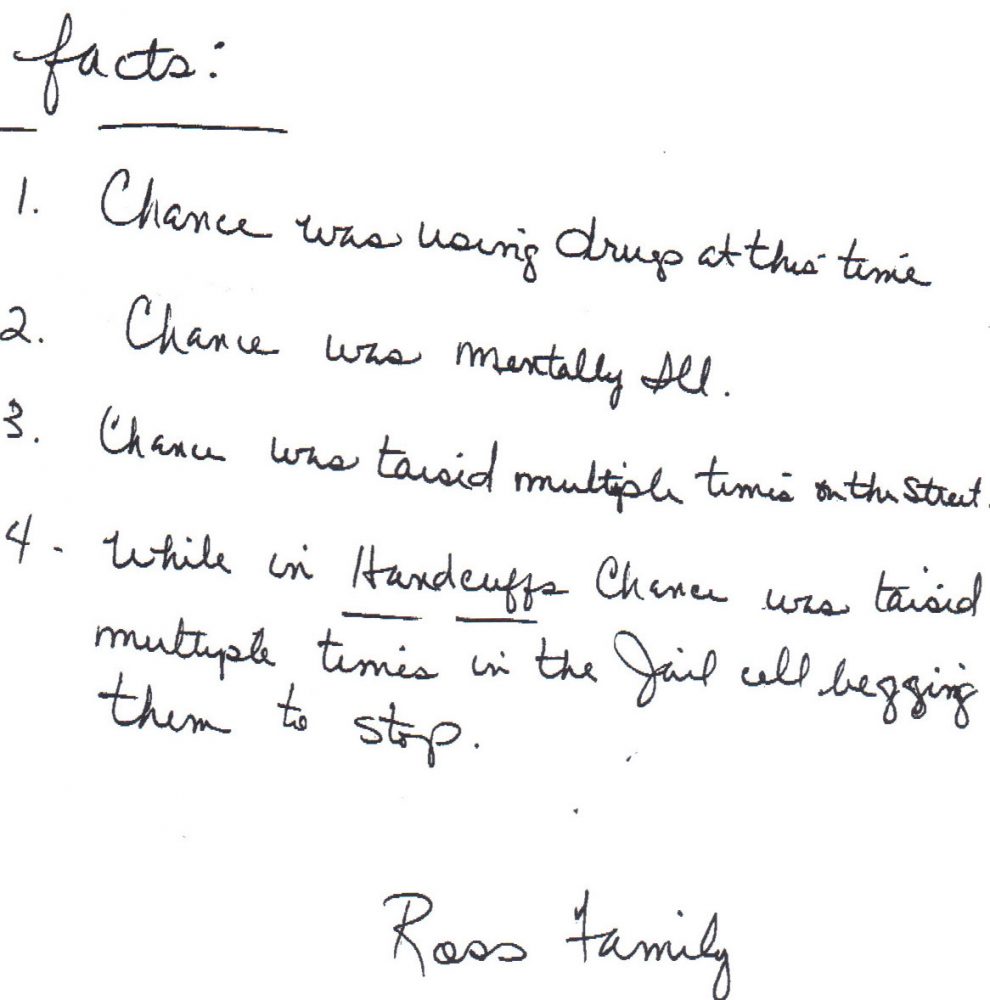 facts:
1. Chance was using drugs at this time
2. Chance was mentally Ill.
3. Chance was taisid multiple times on the Street.
4 - While in Handcuffs Chance was taisid
multiple times in the Jail cell begging
them to stop.
Ross Family